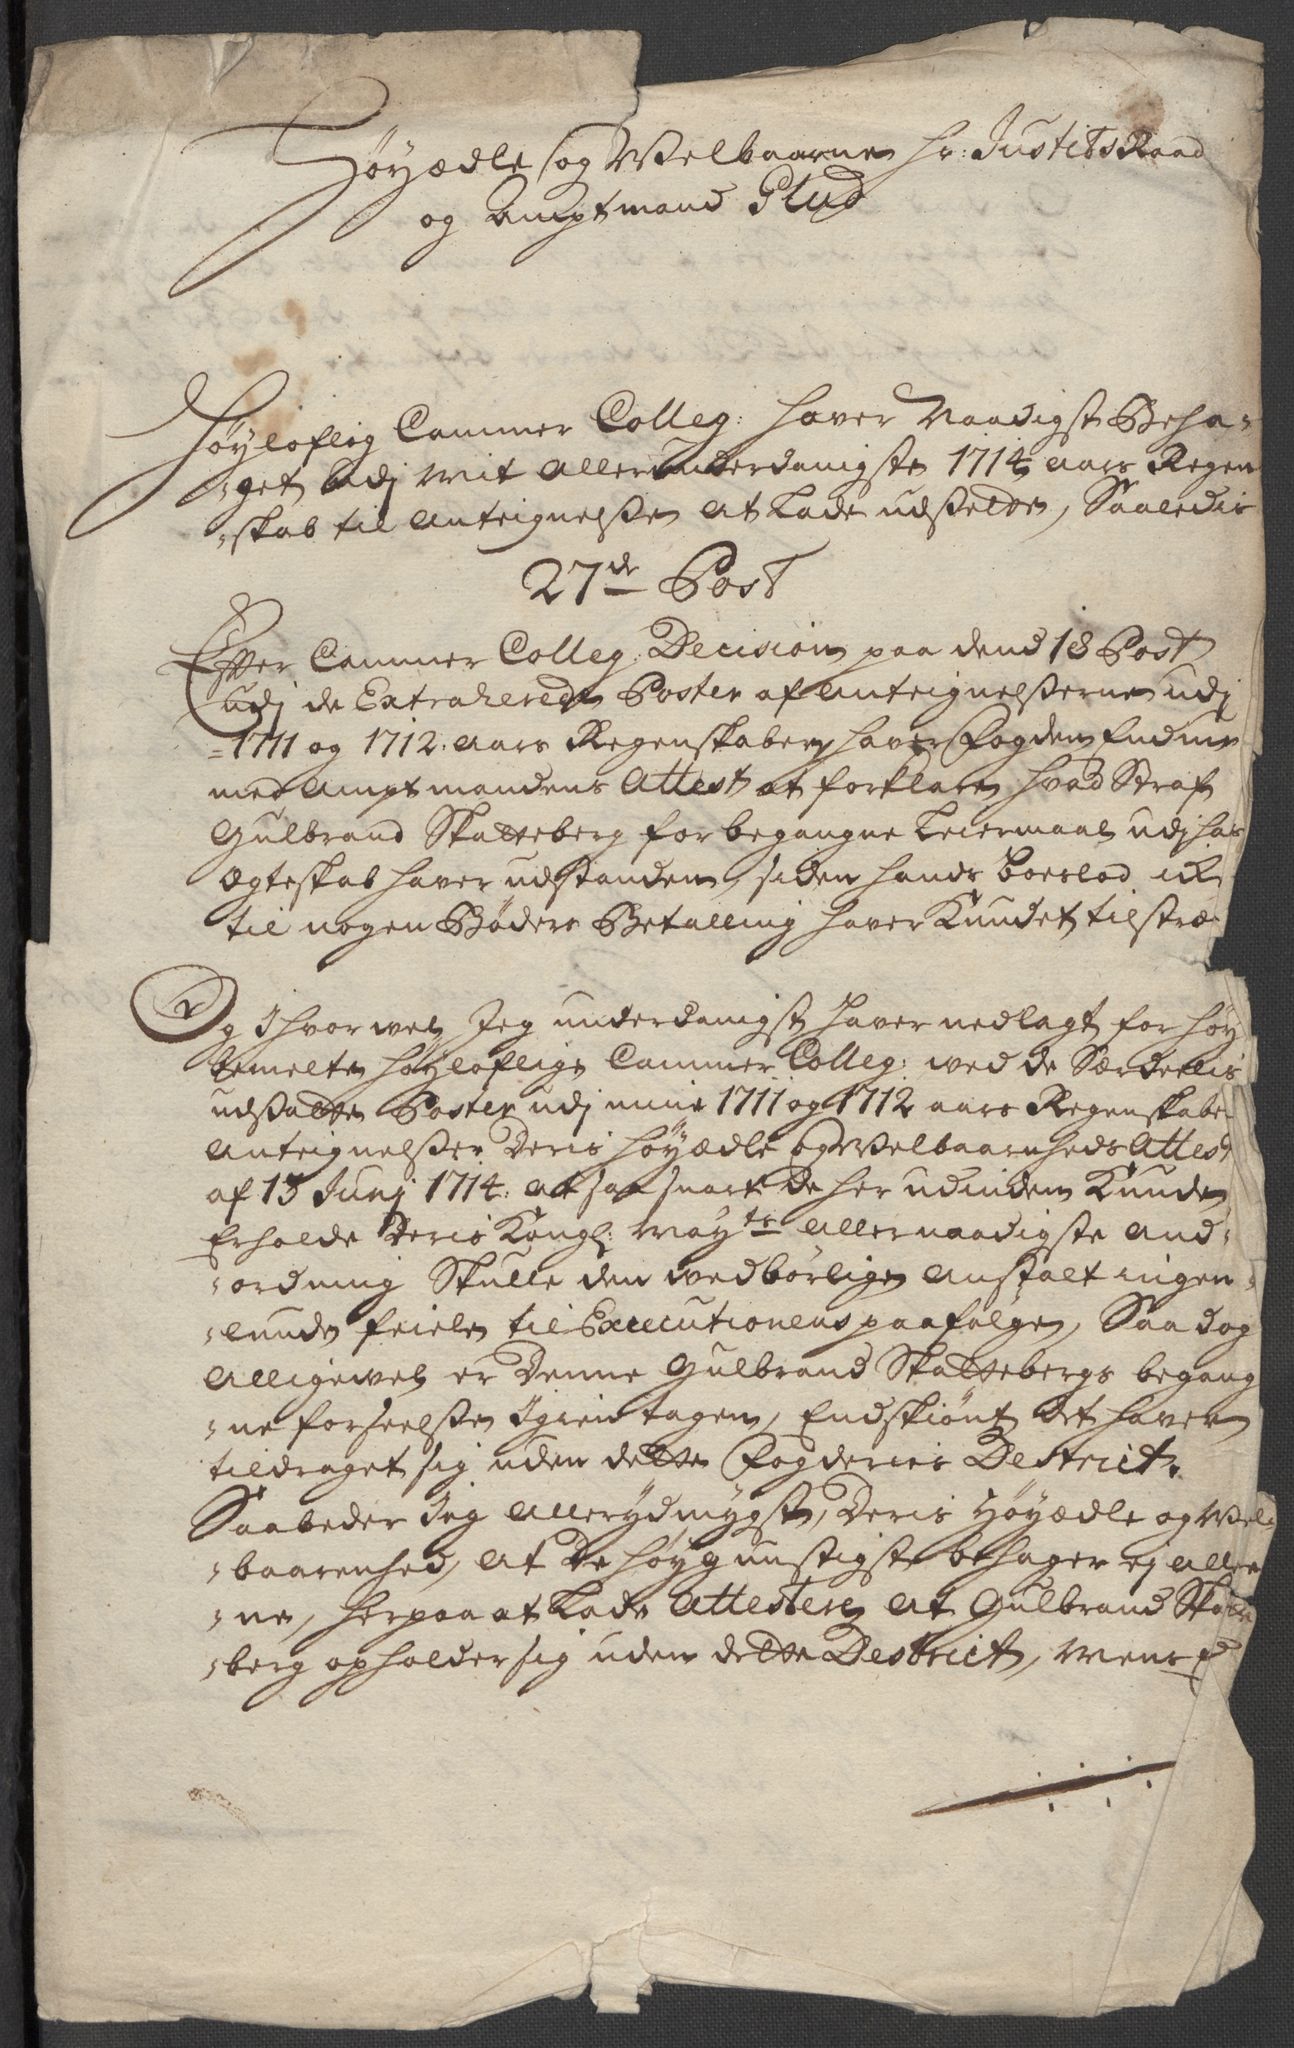 Høyædle og Welbaarne Hr: Justits Raad
og Amptmand Glud
Høyloflig Cammer Colleg: haver Naadigst Beha-
-get udj mit allerunderdanigste 1714 aars Regen
-skab til Anteignelse at Lade udsette, Saaledis
27de Post
Efter Cammer Colleg: Decision paa dend 18 Post
udj de Extraherede Poster af Anteignelserne udj
-1711 og 1712: aars Regenskaber, haver Fogden Endnu
med Amptmandens Attest at forklare, hvad Straf
Gulbrand Skatteberg for begangne Leiermaal udj his
Ægteskab haver udstanden, siden hands boeslod ick
til nogen Bøders Betalling haver Kundet tilstræ
Og Ihvorvel Jeg underdanigst haver nedlagt for høy
bemelte høyloflige Cammer Colleg: ved de Særdellis
udsatte Poster udj mine 1711 og 1712 aars Regenskabe
Anteignelser Deris Høyædle og Welbaarnheds Attest
af 13 Junj 1714: at saa snart de her udinden Kunde
Erholde Deris Kongl: May:ts allernaadigste And-
-ordning Skulle den vedbørlige Anstalt ingen-
-lunde feiele til Executionens paafølge, Saa dog
Alligevel er Denne Gulbrand Skattebergs begang
-ne forseelse Igientagen, Endskiønt det haver
tildraget sig uden dette Fogderies Destrict.
Saa beder Jeg Allerydmygst, Deris Høyædle og Wel-
-baarenhed, At De høygunstigst behager ej alle
-ne, herpaa at Lade Attestere At Gulbrand Skatte
-berg opholder sig uden dette Destrict, Mens